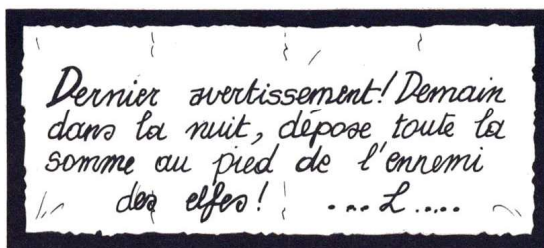 Dernier avertissement! Demain
dans la nuit, dépose toute la
somme au pied de l'ennemi
des elfes! ...L.....